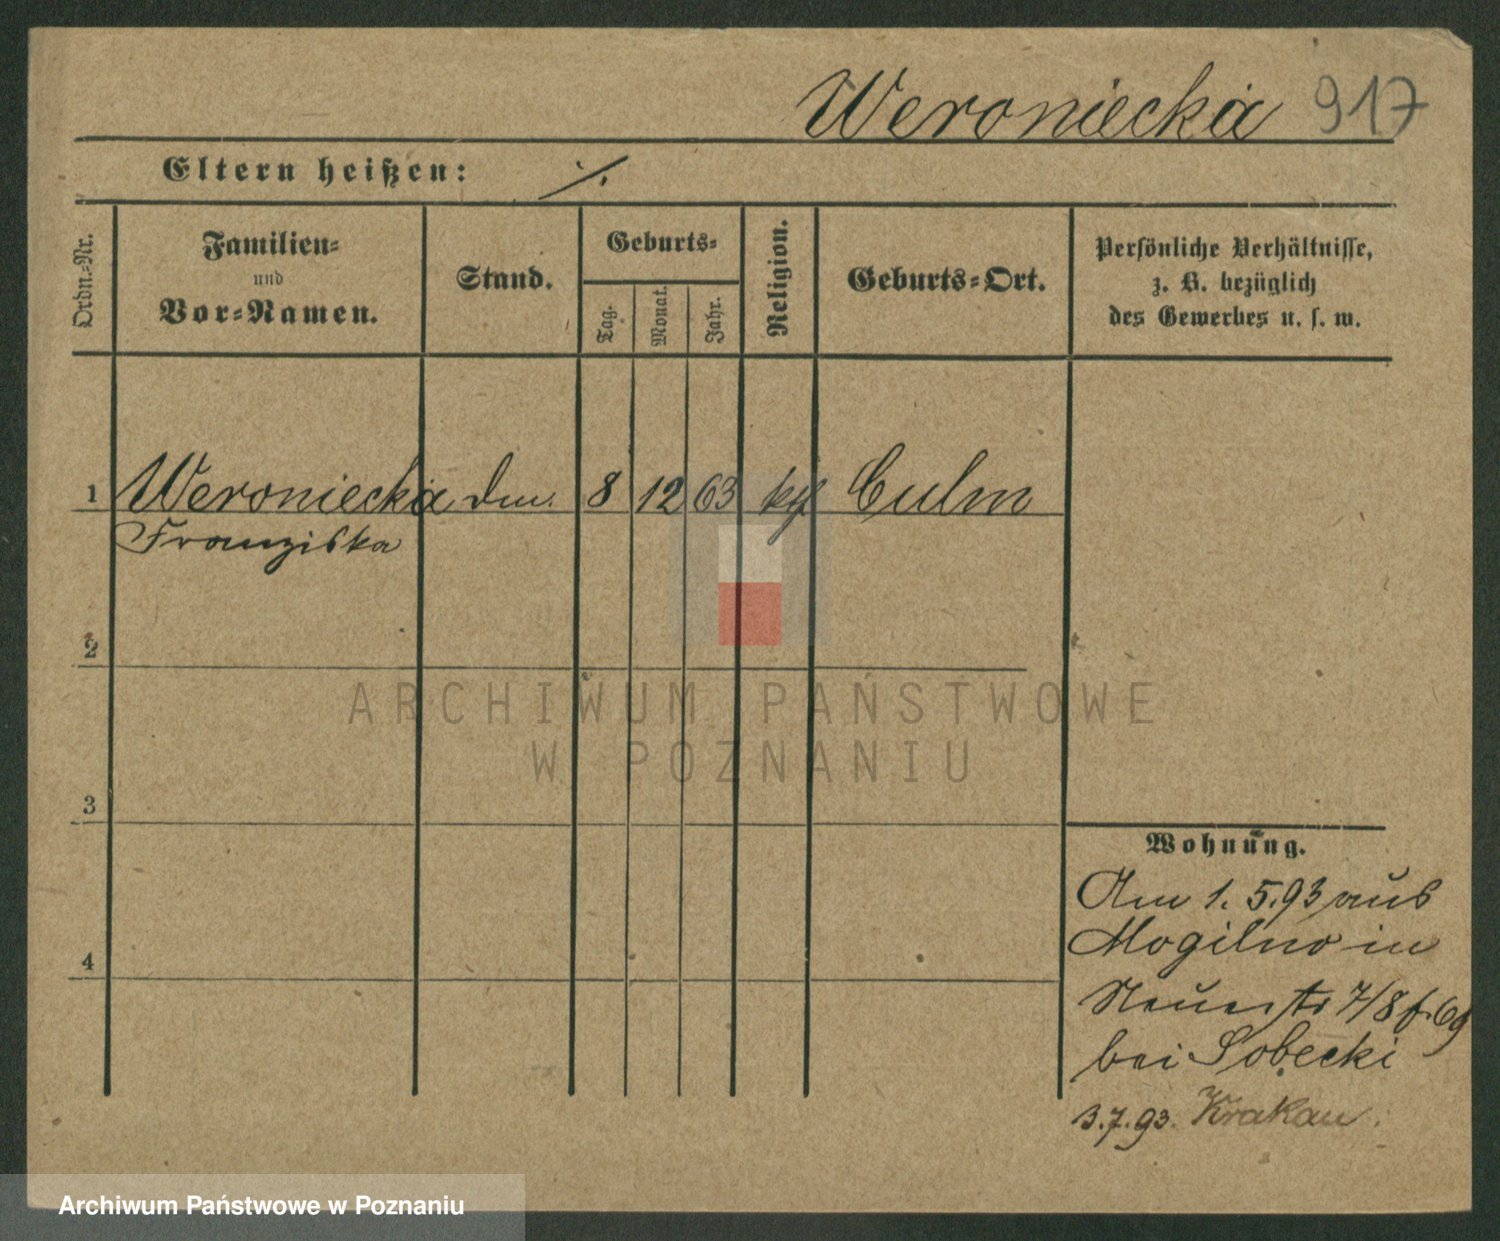 Weroniecka 917
Eltern heißen: ./.
Ordn.-Nr.
Familien-
und
Vor-Namen.
Stand.
Geburts-
Tag.
Monat.
Jahr.
Religion.
Geburts-Ort.
Persönliche Verhältnisse,
z. B. bezüglich
des Gewerbes u. s. w.
1 Weroniecka 8 12 63 Culm
Franziska
2
3
4
ARCHIWUM PAŃSTWOWE
W POZNANIU
Wohnung.
Am 1.5.93 aus
Mogilno in
7/8
bei Sobecki
3.7.93. Krakau.
Archiwum Państwowe w Poznaniu